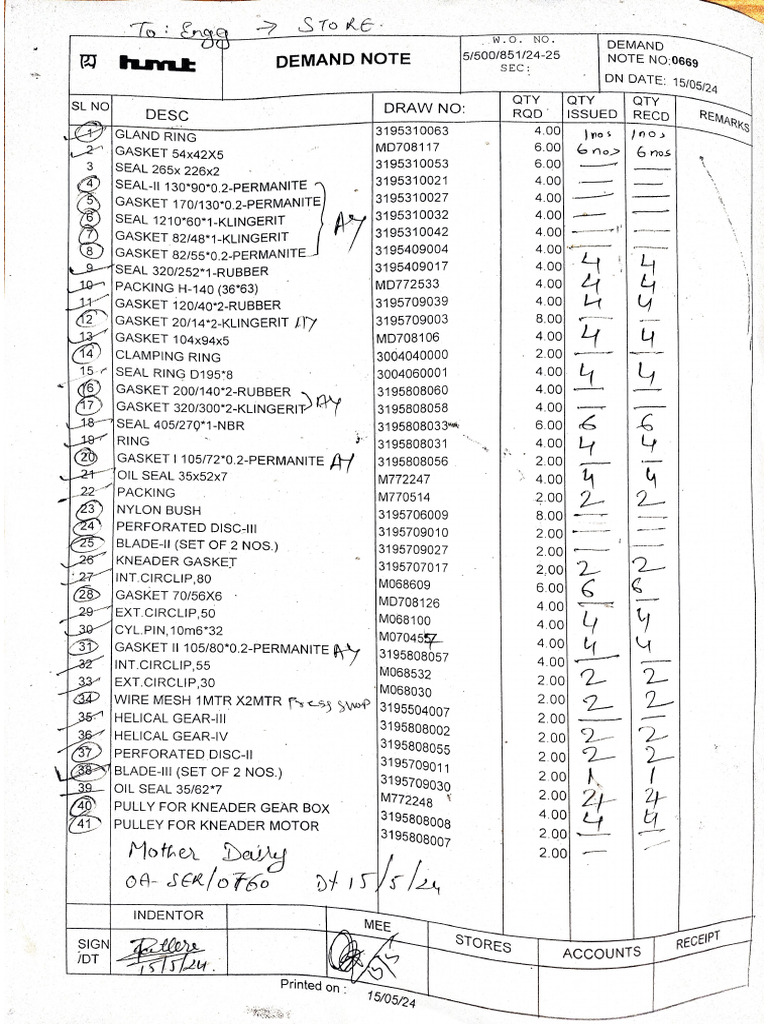 To: Engg → STORE.
hmt DEMAND NOTE W.O. NO. 5/500/851/24-25 SEC: DEMAND NOTE NO:0669
DN DATE: 15/05/24
SL NO DESC DRAW NO: QTY RQD QTY ISSUED QTY RECD REMARKS
1 GLAND RING 3195310063 4.00 1nos 1nos
2 GASKET 54x42X5 MD708117 6.00 6nos 6nos
3 SEAL 265x 226x2 3195310053 6.00 — —
4 SEAL-II 130*90*0.2-PERMANITE 3195310021 4.00 — —
5 GASKET 170/130*0.2-PERMANITE 3195310027 4.00 — —
6 SEAL 1210*60*1-KLINGERIT AY 3195310032 4.00 — —
7 GASKET 82/48*1-KLINGERIT 3195310042 4.00 — —
8 GASKET 82/55*0.2-PERMANITE 3195409004 4.00 — —
9 SEAL 320/252*1-RUBBER 3195409017 4.00 4 4
10 PACKING H-140 (36*63) MD772533 4.00 4 4
11 GASKET 120/40*2-RUBBER 3195709039 4.00 4 4
12 GASKET 20/14*2-KLINGERIT AY 3195709003 8.00 — —
13 GASKET 104x94x5 MD708106 4.00 4 4
14 CLAMPING RING 3004040000 2.00 — —
15 SEAL RING D195*8 3004060001 4.00 4 4
16 GASKET 200/140*2-RUBBER 3195808060 4.00 — —
17 GASKET 320/300*2-KLINGERIT AY 3195808058 4.00 — —
18 SEAL 405/270*1-NBR 3195808033 6.00 6 6
19 RING 3195808031 4.00 4 4
20 GASKET I 105/72*0.2-PERMANITE AY 3195808056 2.00 — —
21 OIL SEAL 35x52x7 M772247 4.00 4 4
22 PACKING M770514 2.00 2 2
23 NYLON BUSH 3195706009 8.00 — —
24 PERFORATED DISC-III 3195709010 2.00 — —
25 BLADE-II (SET OF 2 NOS.) 3195709027 2.00 — —
26 KNEADER GASKET 3195707017 2.00 2 2
27 INT.CIRCLIP,80 M068609 6.00 6 6
28 GASKET 70/56X6 MD708126 4.00 — —
29 EXT.CIRCLIP,50 M068100 4.00 4 4
30 CYL.PIN,10m6*32 M070457 4.00 4 4
31 GASKET II 105/80*0.2-PERMANITE AY 3195808057 4.00 — —
32 INT.CIRCLIP,55 M068532 2.00 2 2
33 EXT.CIRCLIP,30 M068030 2.00 2 2
34 WIRE MESH 1MTR X2MTR Press shop 3195504007 2.00 — —
35 HELICAL GEAR-III 3195808002 2.00 2 2
36 HELICAL GEAR-IV 3195808055 2.00 2 2
37 PERFORATED DISC-II 3195709011 2.00 1 1
38 BLADE-III (SET OF 2 NOS.) 3195709030 2.00
39 OIL SEAL 35/62*7 M772248 4.00 4 4
40 PULLY FOR KNEADER GEAR BOX 3195808008 2.00 — —
41 PULLEY FOR KNEADER MOTOR 3195808007 2.00 — —
Mother Dairy
OA- SER/0760 Dt 15/5/24
INDENTOR MEE STORES ACCOUNTS RECEIPT
SIGN /DT 15/5/24 15/5
Printed on : 15/05/24